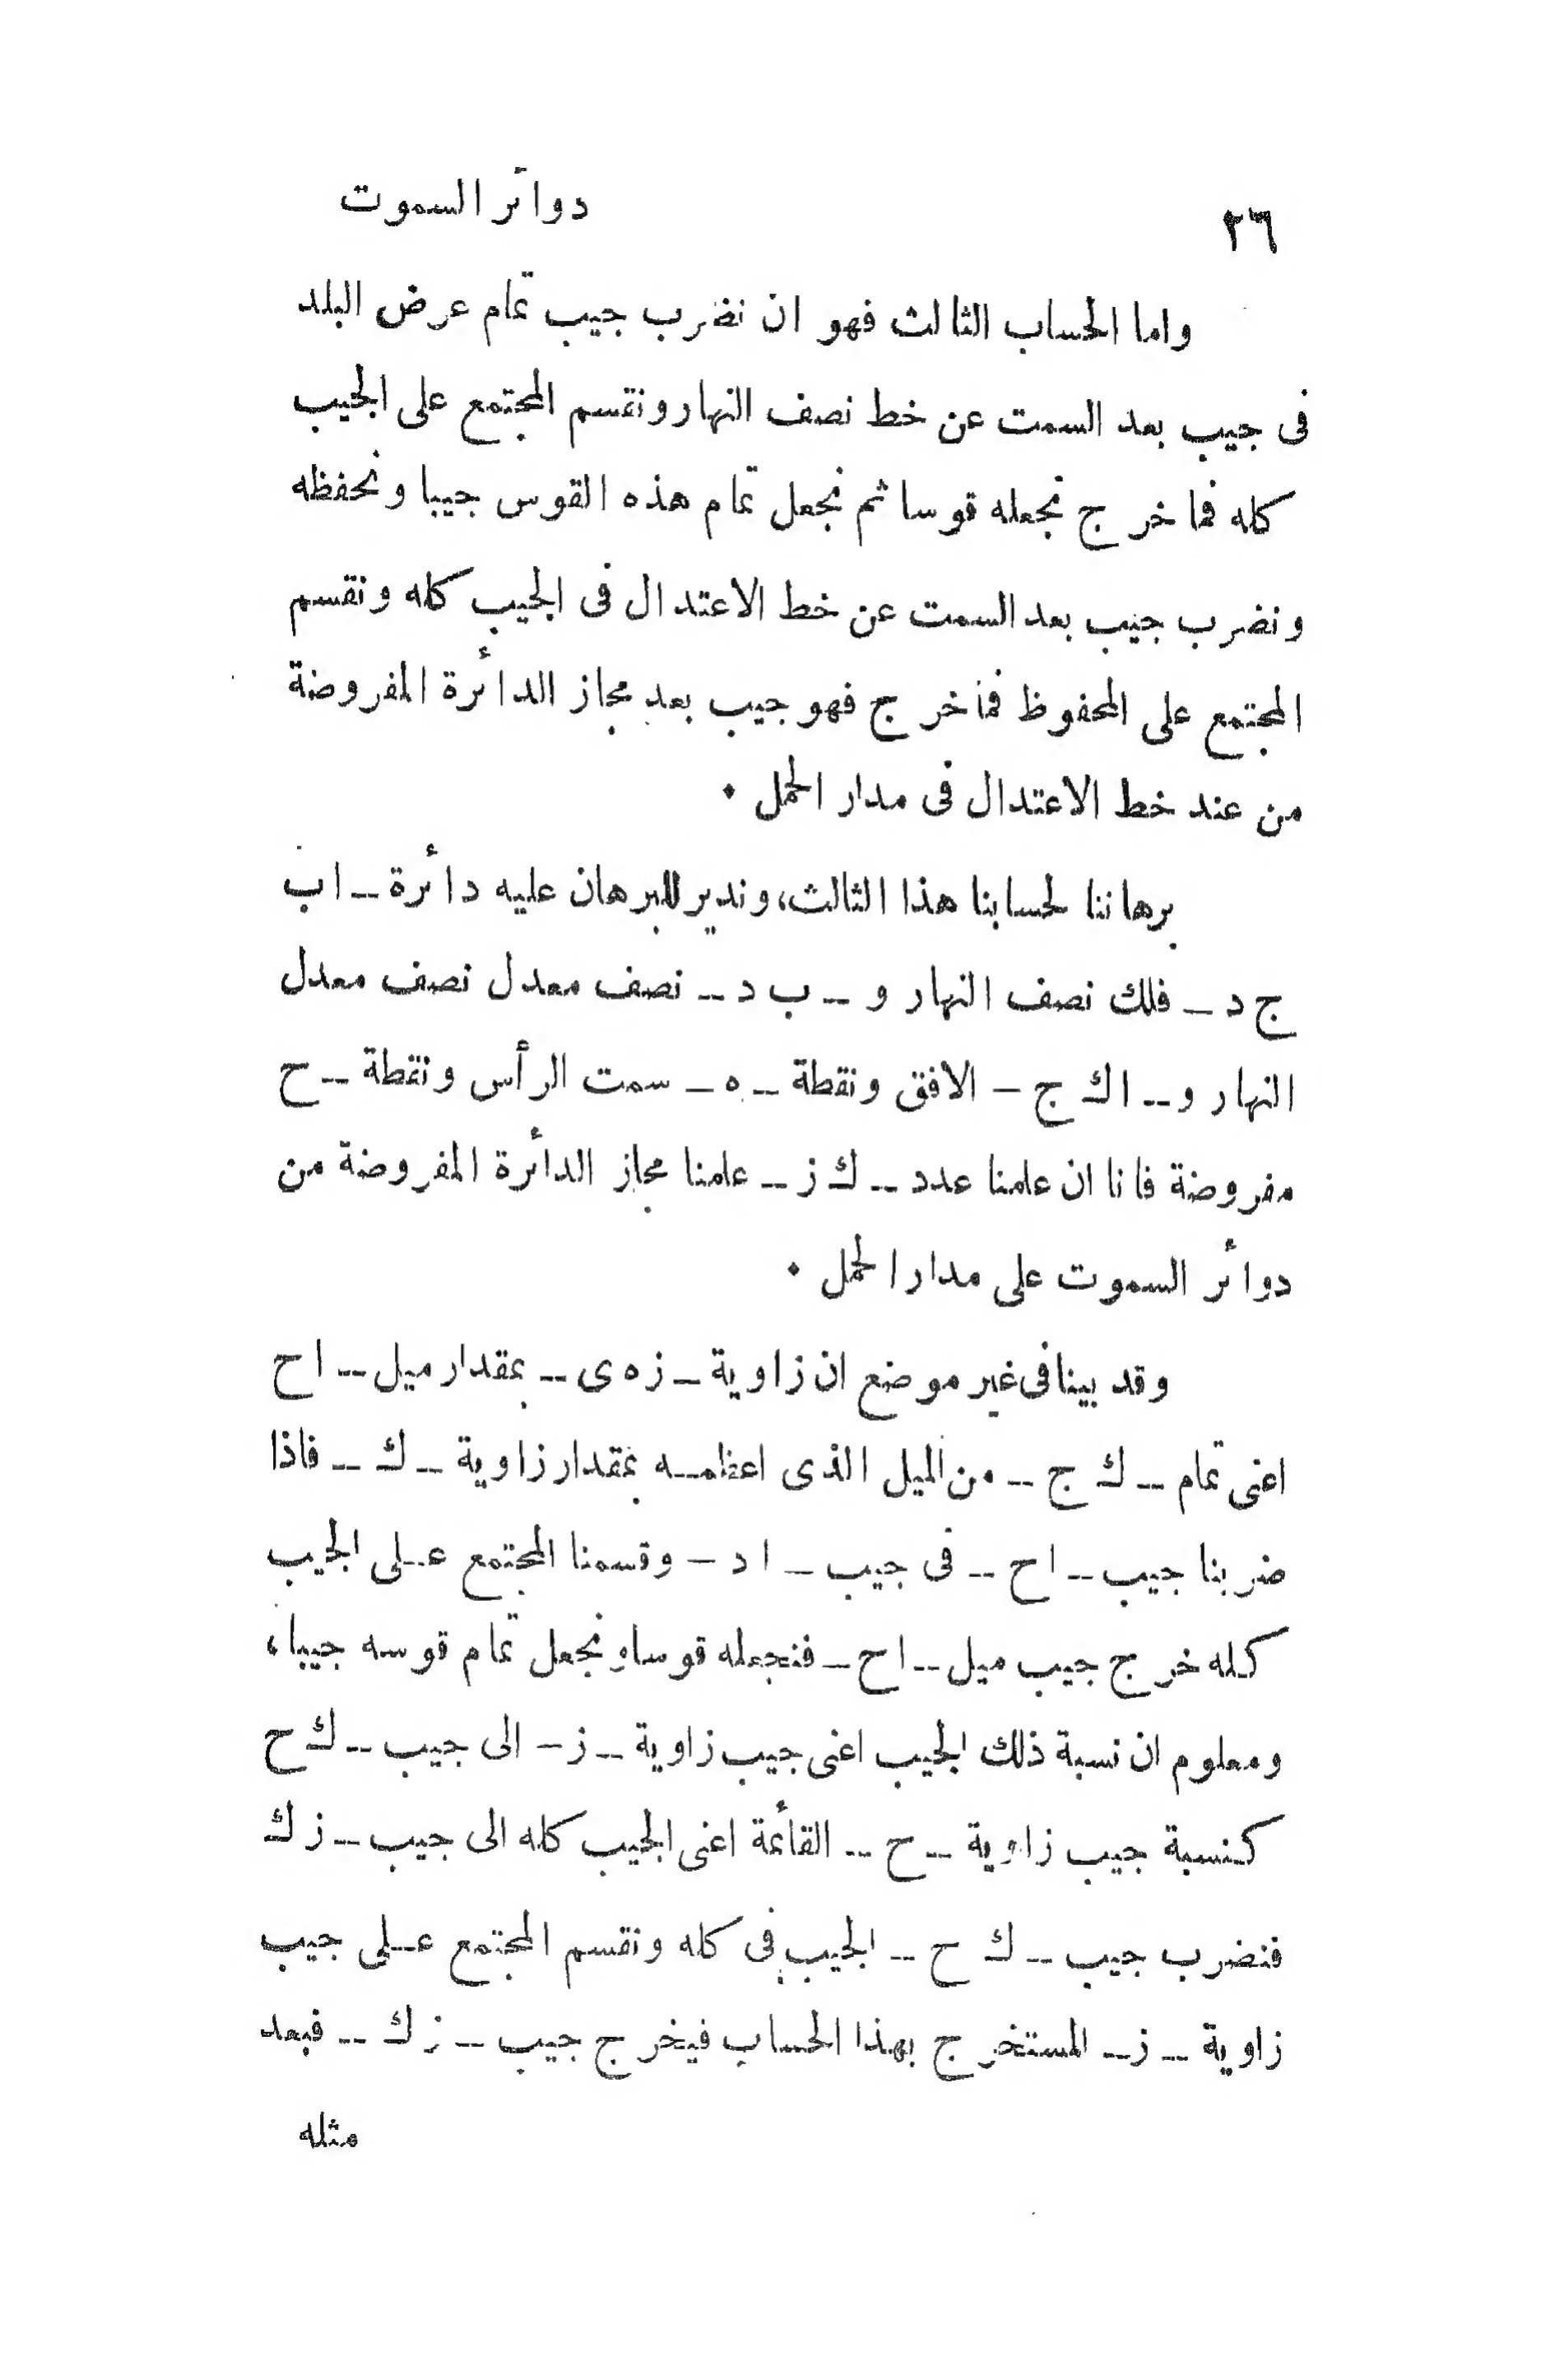 ٢٦
دوائر السموت
واما الحساب الثالث فهو ان نضرب جيب تمام عرض البلد
فى جيب بعد السمت عن خط نصف النهار ونقسم المجتمع على الجيب
كله فما خرج نجعله قوسا ثم نجعل تمام هذه القوس جيبا ونحفظه
ونضرب جيب بعد السمت عن خط الاعتدال فى الجيب كله ونقسم
المجتمع على المحفوظ فما خرج فهو جيب بعد مجاز الدائرة المفروضة
من عند خط الاعتدال فى مدار الحمل ٠
برهاننا لحسابنا هذا الثالث، وندير للبرهان عليه دائرة – اب
ج د – فلك نصف النهار و – ب د – نصف معدل نصف معدل
النهار و – اك ج – الافق ونقطة – ه – سمت الرأس ونقطة – ح
مفروضة فانا ان علمنا عدد – ك ز – علمنا مجاز الدائرة المفروضة من
دوائر السموت على مدار الحمل ٠
وقد بينا فى غير موضع ان زاوية – ز ه ى – بمقدار ميل – اح
اعنى تمام – ك ج – من الميل الذى اعظمه بمقدار زاوية – ك – فاذا
ضربنا جيب – اح – فى جيب – اد – وقسمنا المجتمع على الجيب
كله خرج جيب ميل – اح – فنجعله قوسا ونجعل تمام قوسه جيبا،
ومعلوم ان نسبة ذلك الجيب اعنى جيب زاوية – ز – الى جيب – ك ح
كنسبة جيب زاوية – ح – القائمة اعنى الجيب كله الى جيب – ز ك
فنضرب جيب – ك ح – الجيب فى كله ونقسم المجتمع على جيب
زاوية – ز – المستخرج بهذا الحساب فيخرج جيب – ز ك – فبعد
مثله